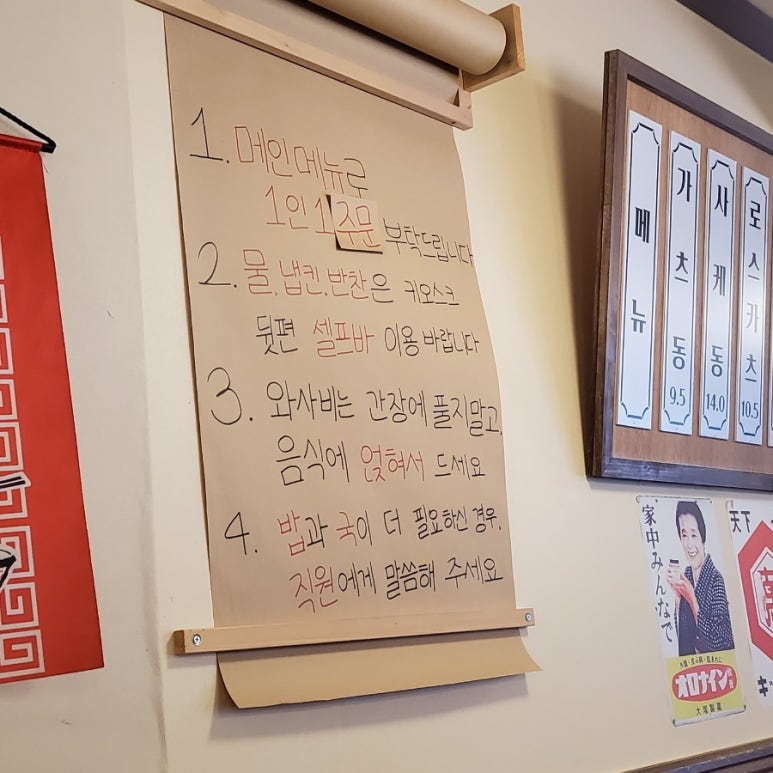 1. 메인메뉴로
1인 1주문 부탁드립니다
2. 물, 냅킨, 반찬은 키오스크
뒷편 셀프바 이용 바랍니다
3. 와사비는 간장에 풀지말고,
음식에 얹혀서 드세요
4. 밥과 국이 더 필요하신 경우,
직원에게 말씀해 주세요
메뉴
가츠동 9.5
사케동 14.0
로스카츠 10.5
家中みんなで
オロナイン軟膏
大塚製薬
天下
キ